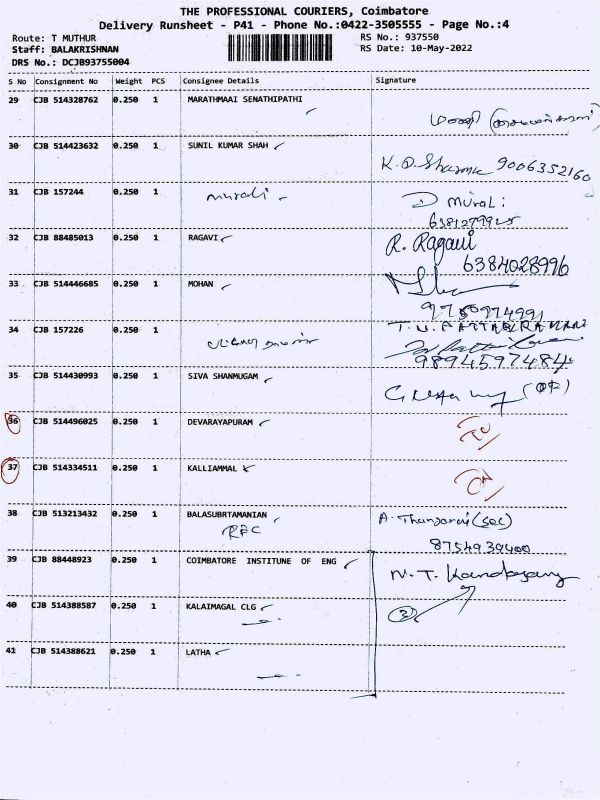 THE PROFESSIONAL COURIERS, Coimbatore
Delivery Runsheet - P41 - Phone No.:0422-3505555 - Page No.:4
Route: T MUTHUR RS No.: 937550
Staff: BALAKRISHNAN RS Date: 10-May-2022
DRS No.: DCJB93755004
S No Consignment No Weight PCS Consignee Details Signature
29 CJB 514328762 0.250 1 MARATHMAAI SENATHIPATHI
30 CJB 514423632 0.250 1 SUNIL KUMAR SHAH
K. D. Sharma 9006352160
31 CJB 157244 0.250 1 murali D murali
32 CJB 88485013 0.250 1 RAGAVI R. Ragavi
6384028996
33 CJB 514446685 0.250 1 MOHAN
9750974991
34 CJB 157226 0.250 1 T.V. PATTABIRAMAN
9894597484
35 CJB 514430993 0.250 1 SIVA SHANMUGAM
36 CJB 514496025 0.250 1 DEVARAYAPURAM
37 CJB 514334511 0.250 1 KALLIAMMAL
38 CJB 513213432 0.250 1 BALASUBRTAMANIAN A. Thangaraj (Sec)
8754939400
39 CJB 88448923 0.250 1 COIMBATORE INSTITUNE OF ENG
40 CJB 514388587 0.250 1 KALAIMAGAL CLG
41 CJB 514388621 0.250 1 LATHA